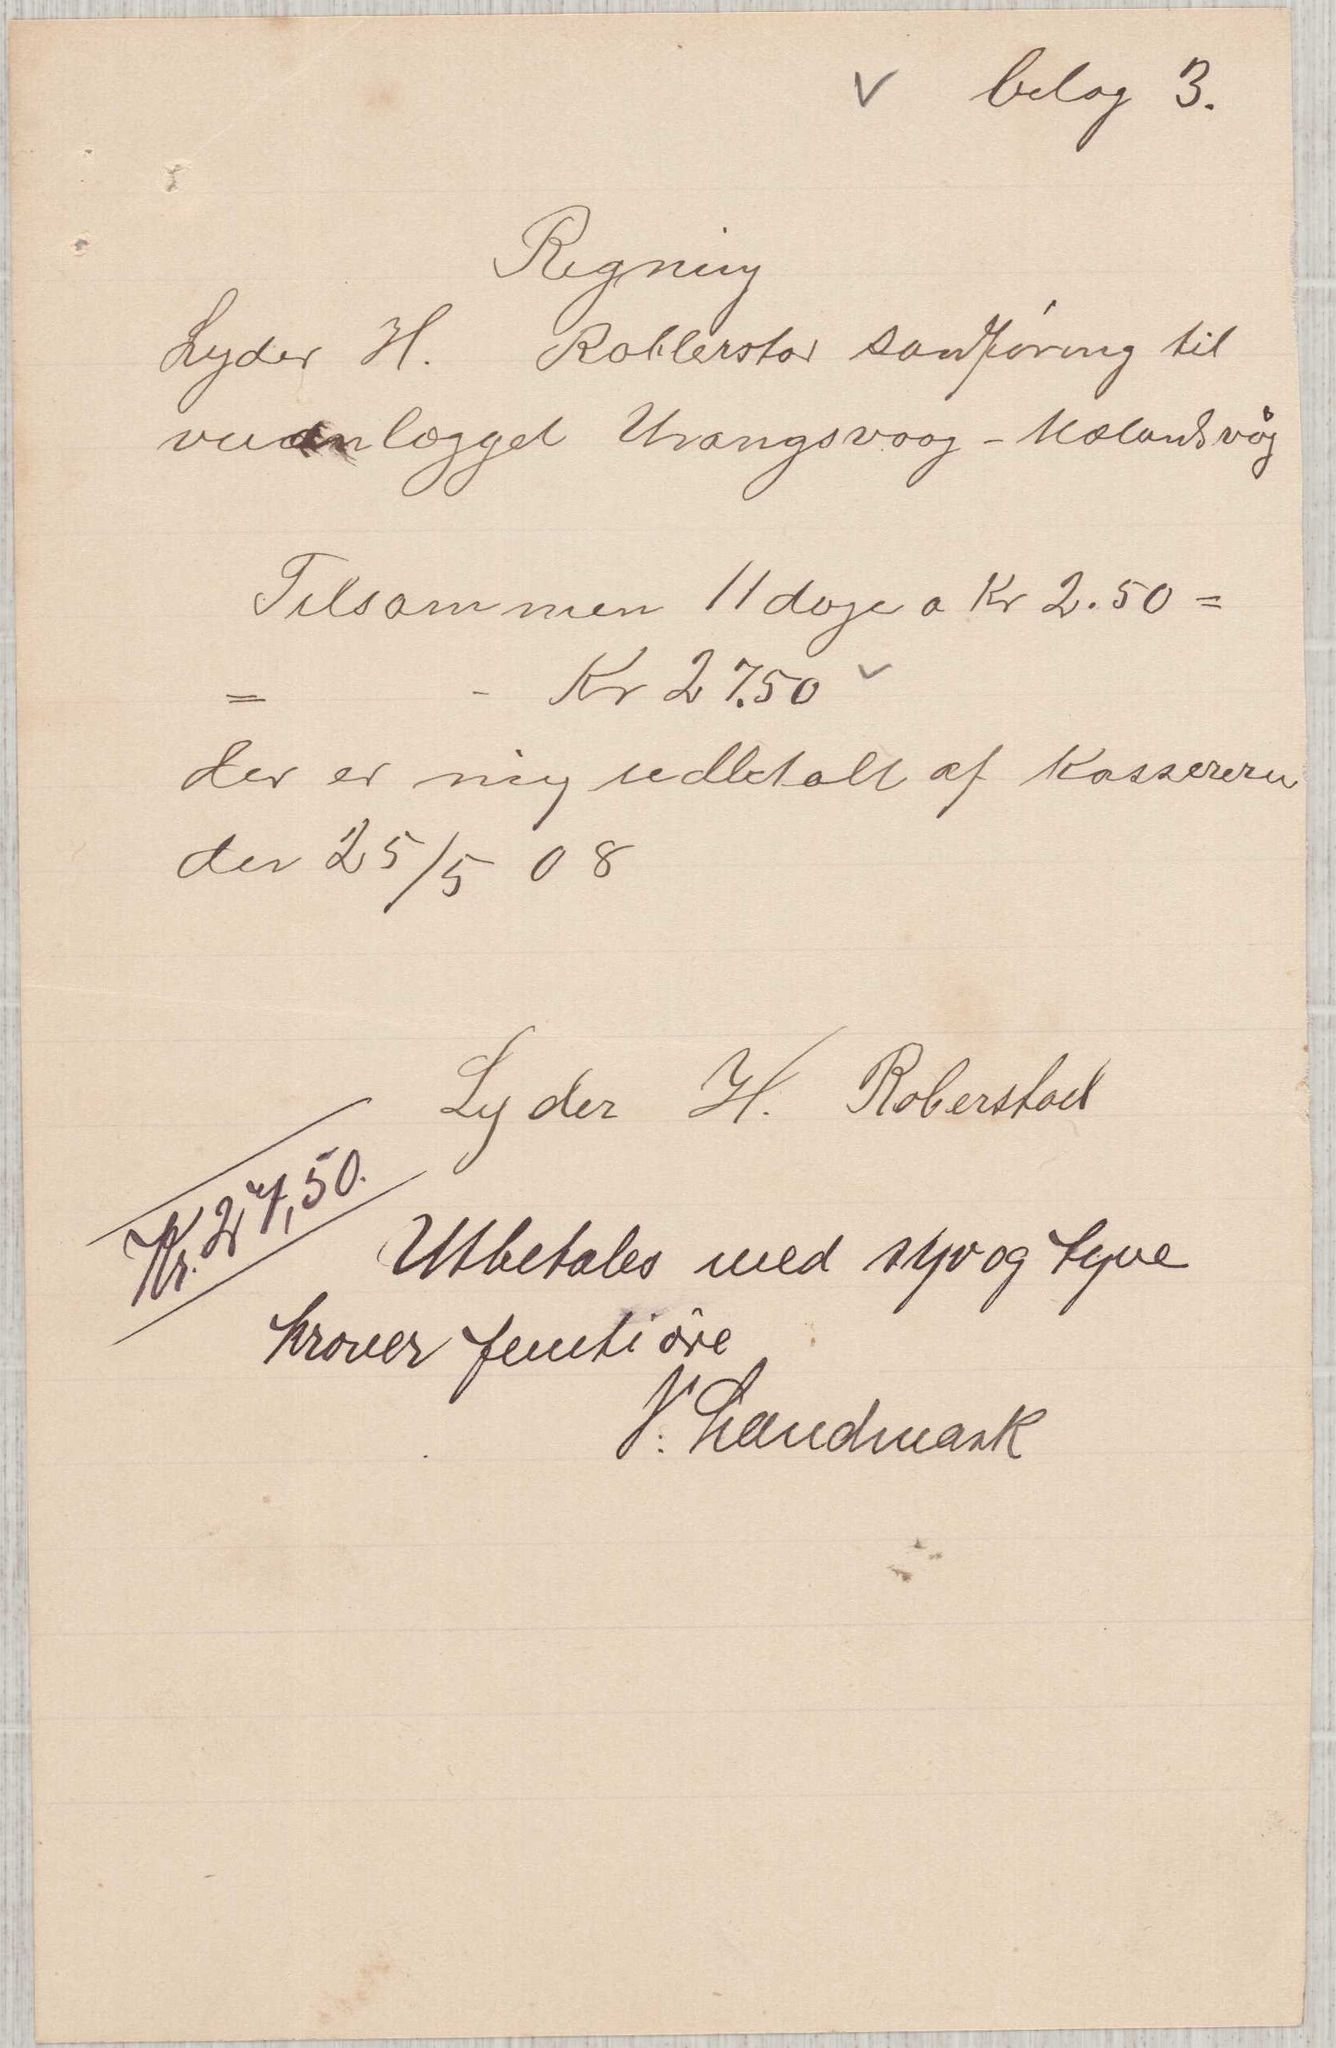 v belag 3.
Regning
Lyder H. Robberstad sandføring til
veianlægget Urangsvaag - Mælandsvåg
Tilsammen 11 dage a Kr 2.50 =
= - Kr 27.50 v
der er mig udbetalt af Kassereren
den 25/5 08
Lyder H. Roberstad
Kr. 27,50.
Utbetales med syv og tyve
kroner femti øre
V. Landmark